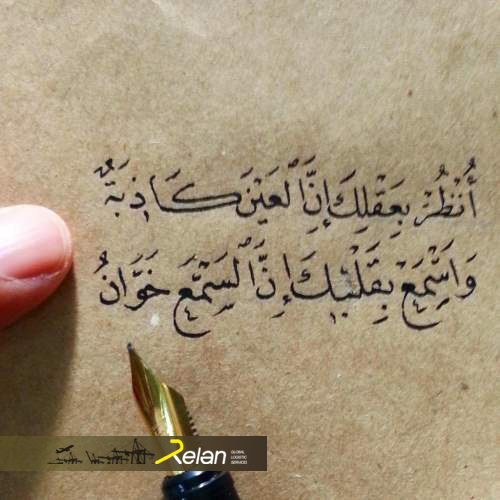 أُنْظُرْ بِعَقْلِكَ إِنَّ الْعَيْنَ كَاذِبَةٌ
وَاسْمَعْ بِقَلْبِكَ إِنَّ السَّمْعَ خَوَّانُ
Relan
GLOBAL
LOGISTIC
SERVICES